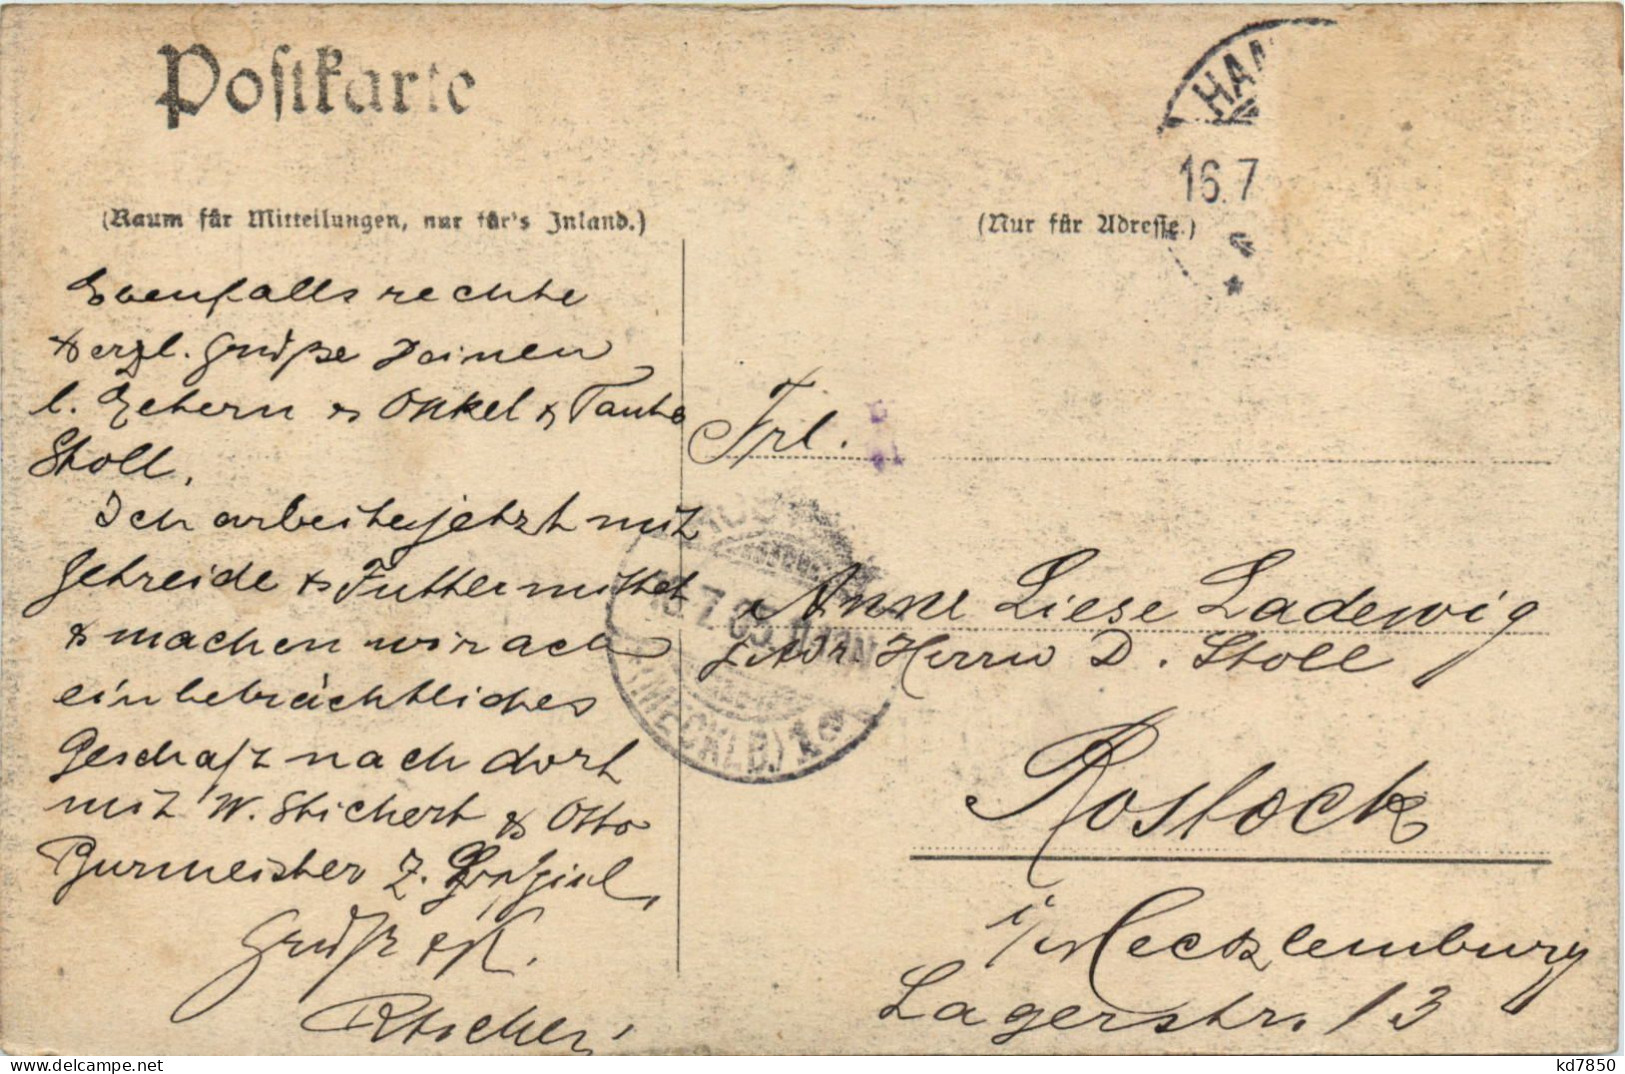 Postkarte
(Raum für Mitteilungen, nur für's Inland.)
(Nur für Adresse.)
HAA
16.7
Ebenfalls rechte
herzl. Grüße Deinen
l. Eltern & Onkel & Tante
Stoll.
Ich arbeite jetzt mit
Getreide & Futtermittel
& machen wir ach
ein beträchtliches
Geschäft nach dort
mit W. Stichert & Otto
Burmeister z.
Gruß & K.
Frl.
Anne Liese Ladewig
Adr. Herrn D. Stoll
Rostock
i/Mecklenburg
Lagerstr. 13
(MECKLB.) 1
kd7850